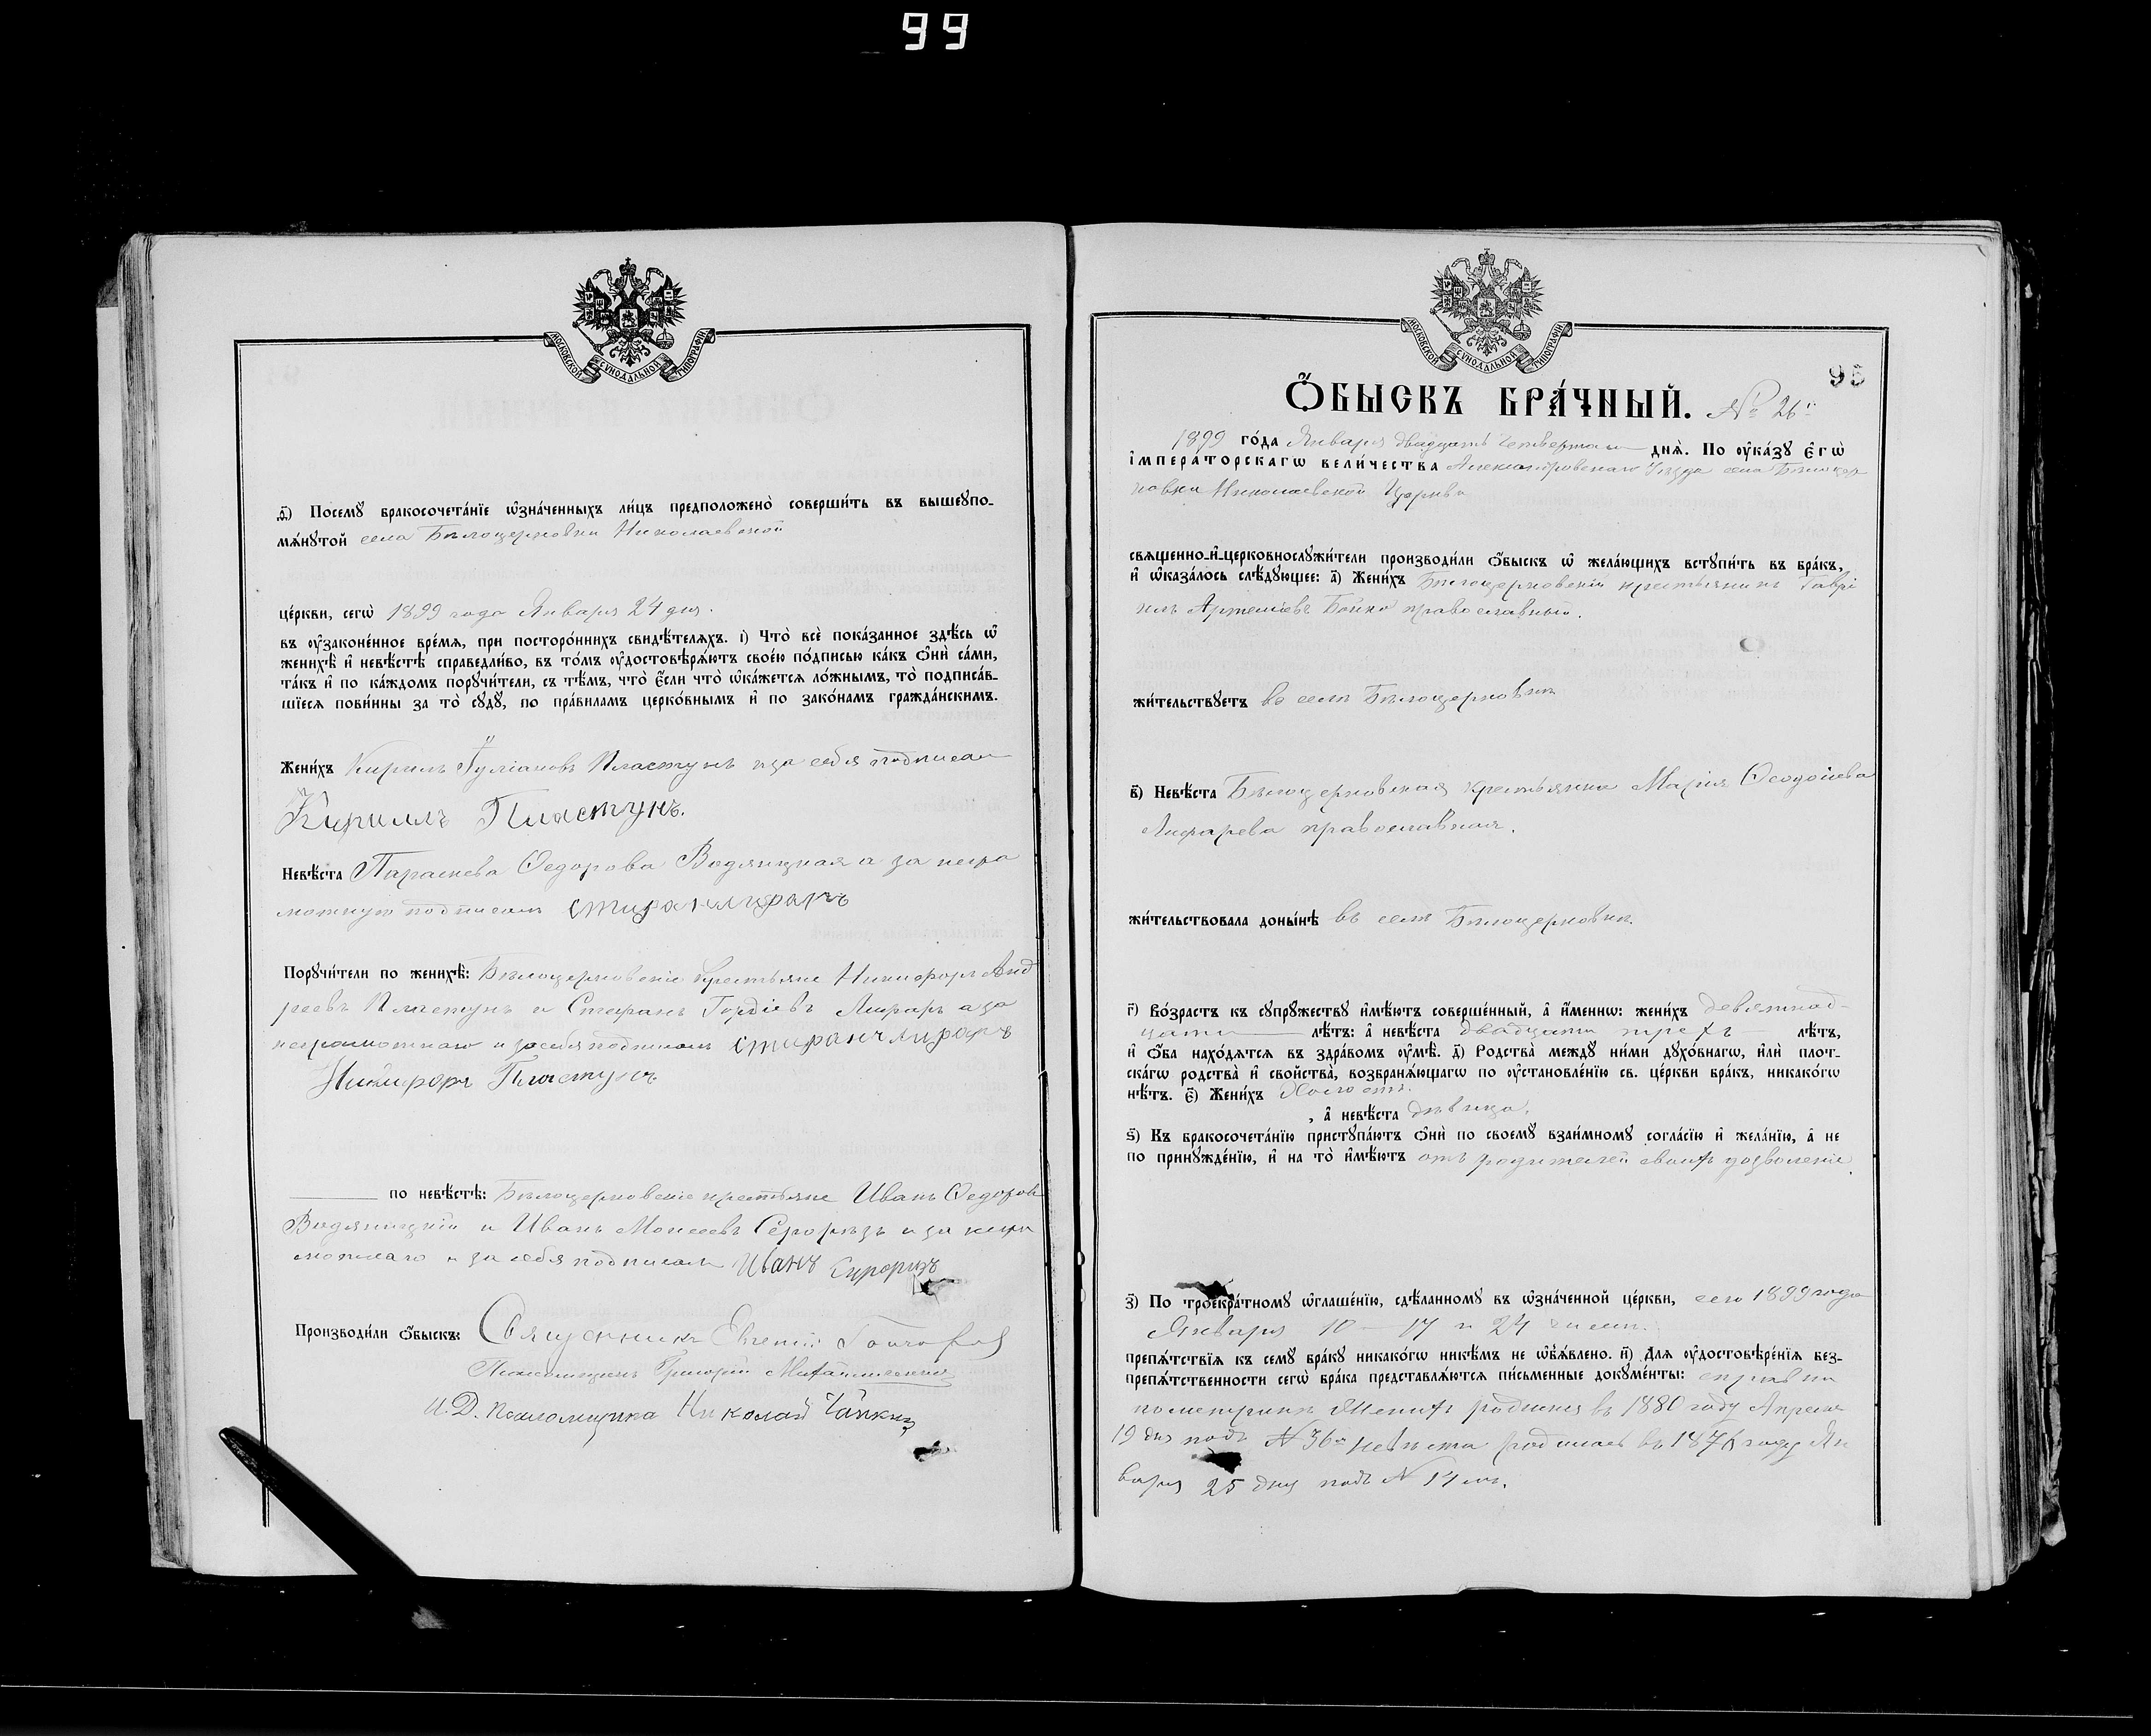 99
МОСКОВСКОЙ СѴНОДАЛЬНОЙ ТИПОГРАФІИ
ѳ҃) Посемꙋ бракосочета́нїе ѡ҆зна́ченныхъ ли́цъ предположено̀ соверши́ть въ вышеупо-
мѧ́нутой села Бѣлоцерковки Николаевской
це́ркви, сегѡ̀ 1899 года Января 24 дня.
въ оу҆законе́нное вре́мѧ, при посторо́ннихъ свидѣ́телѧхъ. і҃) Что̀ всѐ пока́занное здѣ́сь ѡ҆
женихѣ̀ и҆ невѣ́стѣ справедли́во, въ то́мъ оу҆достовѣрѧ́ютъ свое́ю по́дписью ка́къ ѻ҆нѝ са́ми,
та́къ и҆ по ка́ждомъ поручи́тели, съ тѣ́мъ, что̀ є҆́сли что̀ ѡ҆ка́жетсѧ ло́жнымъ, то̀ подписа́в-
шїесѧ пови́нны за то̀ сꙋдꙋ̀, по пра́виламъ церко́внымъ и҆ по зако́намъ гражда́нскимъ.
Жени́хъ Кирилъ Іуліановъ Пластунъ и за себя подписал
Кириллъ Пластунъ.
Невѣ́ста Параскева Ѳедорова Водяницкая а за негра
мотную подписалъ
Порꙋчи́тели по женихѣ̀: Бѣлоцерковскіе крестьяне Никифоръ Анд
реевъ Пластунъ и Стефанъ Гордіевъ Лифарь а за
неграмотнаго и за себя подписалъ
Никифоръ Пластунъ
по невѣ́стѣ: Бѣлоцерковскіе крестьяне Иванъ Ѳедоров
Водяницкій и Иванъ Моисеевъ а за негра
мотнаго и за себя подписалъ Иванъ
Производи́ли ѻ҆́быскъ: Священникъ Евгеній
Псаломщикъ Григорій
И. Д. Псаломщика Николай
МОСКОВСКОЙ СѴНОДАЛЬНОЙ ТИПОГРАФІИ
95
Ѻ҆́БЫСКЪ БРА́ЧНЫЙ. № 26й
1899 го́да Января двадцать четвертаго днѧ̀. По оу҆ка́зꙋ є҆гѡ̀
і҆мпера́торскагѡ вели́чества Александровскаго Уѣзда села Бѣлоцер
ковки Николаевской Церкви
свѧщенно-и҆-церковнослꙋжи́тели производи́ли ѻ҆́быскъ ѡ҆ жела́ющихъ встꙋпи́ть въ бра́къ,
и҆ ѡ҆каза́лось слѣ́дꙋющее: а҃) Жени́хъ Бѣлоцерковскій крестьянинъ Гаврі
илъ Артеміевъ Бойко православный.
жи́тельствꙋетъ въ селѣ Бѣлоцерковкѣ
в҃) Невѣ́ста Бѣлоцерковская крестьянка Марія Ѳеодосіева
Лифарева православная.
жи́тельствовала доны́нѣ въ селѣ Бѣлоцерковкѣ.
г҃) Во́зрастъ къ сꙋпрꙋ́жествꙋ и҆мѣ́ютъ соверше́нный, а҆ и҆́меннѡ: жени́хъ девятнад-
цати лѣ́тъ: а҆ невѣ́ста двадцати трехъ лѣ́тъ,
и҆ ѻ҆́ба нахо́дѧтсѧ въ здра́вомъ оу҆мѣ̀. д҃) Родства̀ междꙋ̀ ни́ми дꙋхо́внагѡ, и҆лѝ плот-
ска́гѡ родства̀ и҆ сво́йства, возбранѧ́ющагѡ по оу҆становле́нїю св. це́ркви бра́къ, никако́гѡ
нѣ́тъ. є҃) Жени́хъ Холостъ.
, а҆ невѣ́ста дѣвица.
ѕ҃) Къ бракосочета́нїю пристꙋпа́ютъ ѻ҆нѝ по своемꙋ̀ взаи́мномꙋ согла́сїю и҆ жела́нїю, а҆ не
по принꙋжде́нїю, и҆ на то̀ и҆мѣ́ютъ отъ родителей своихъ дозволеніе.
з҃) По троекра́тномꙋ ѡ҆глаше́нїю, сдѣ́ланномꙋ въ ѡ҆зна́ченной це́ркви, сего 1899 года
Января 10 — 17 и 24 чиселъ.
препѧ́тствїѧ къ семꙋ̀ бра́кꙋ никако́гѡ никѣ́мъ не ѡ҆б̾ѧ́влено. и҃) Длѧ оу҆достовѣре́нїѧ без-
препѧ́тственности сегѡ̀ бра́ка представлѧ́ютсѧ пи́сьменные докꙋме́нты: справки
по метрикѣ Женихъ родился въ 1880 году Апреля
19 дня подъ № 36м Невѣста родилась въ году Ян
варя 25 дня подъ № 14мъ.